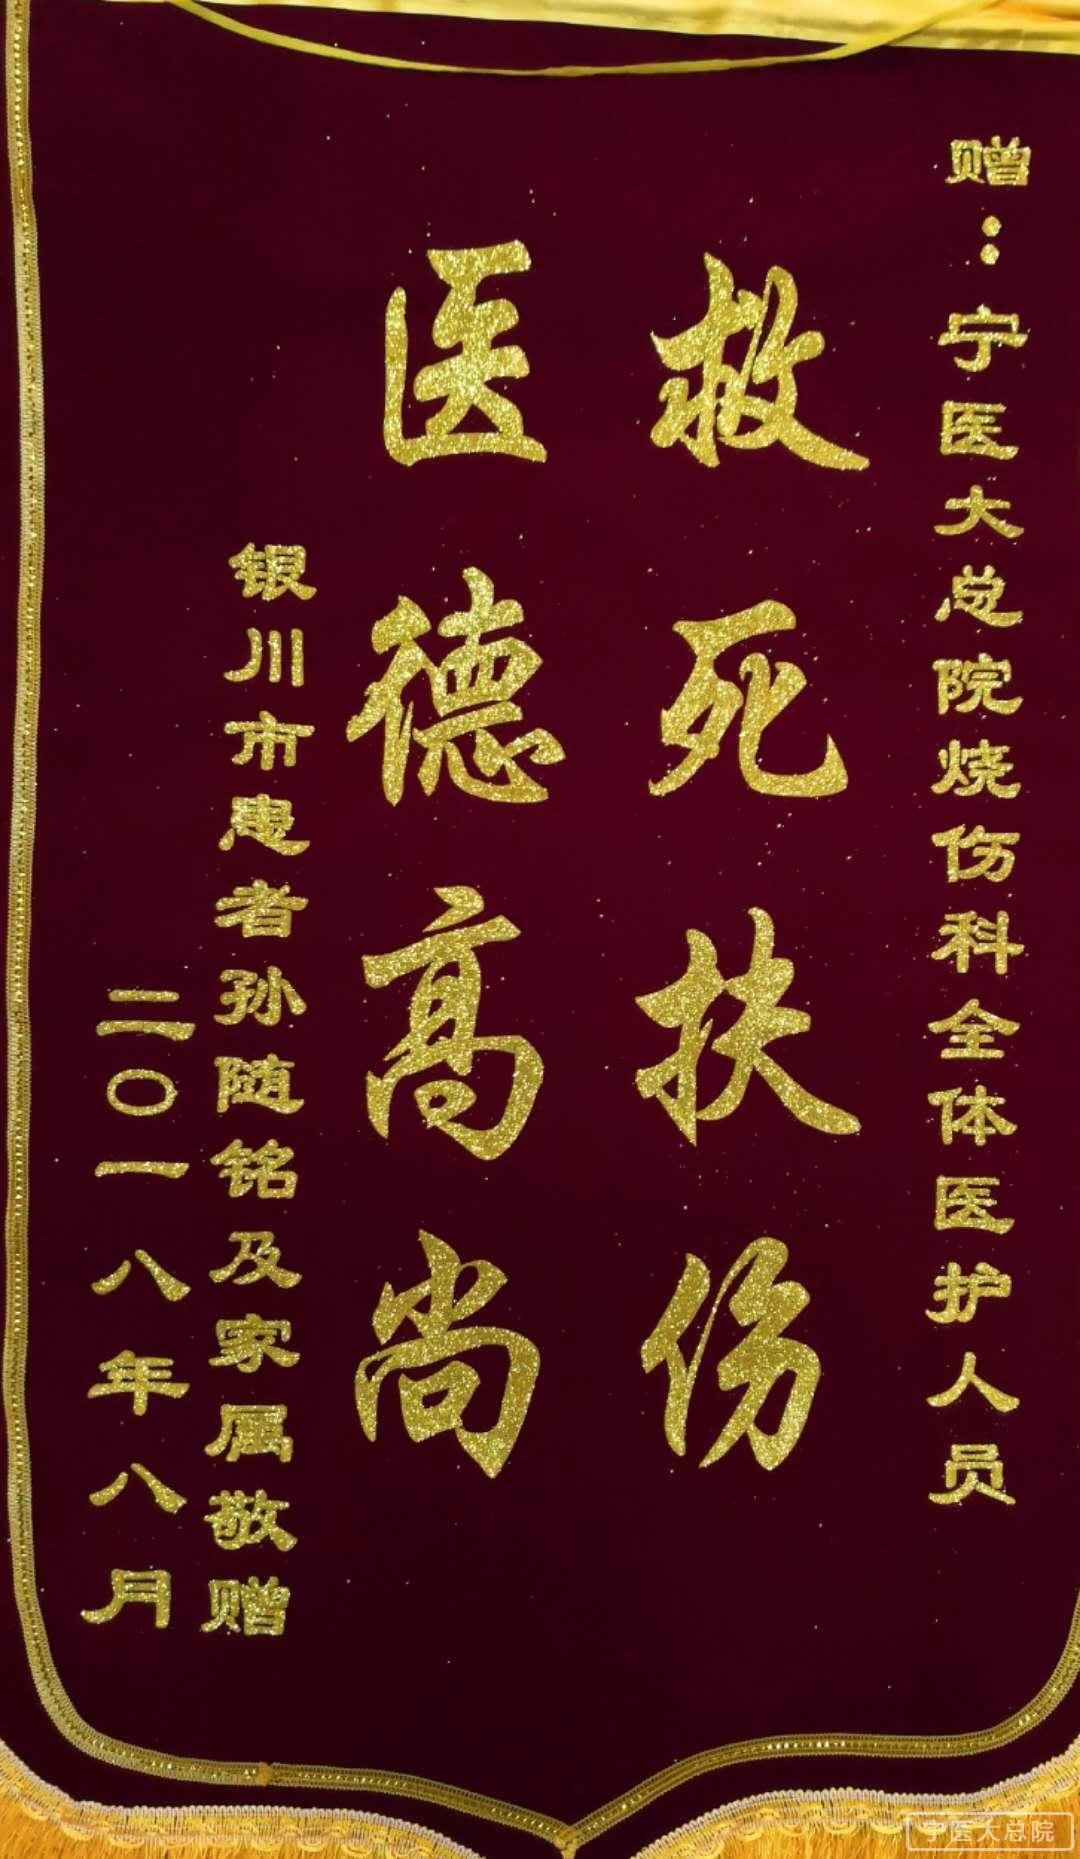 赠：宁医大总院烧伤科全体医护人员
救死扶伤
医德高尚
银川市患者孙随铭及家属敬赠
二〇一八年八月
宁医大总院